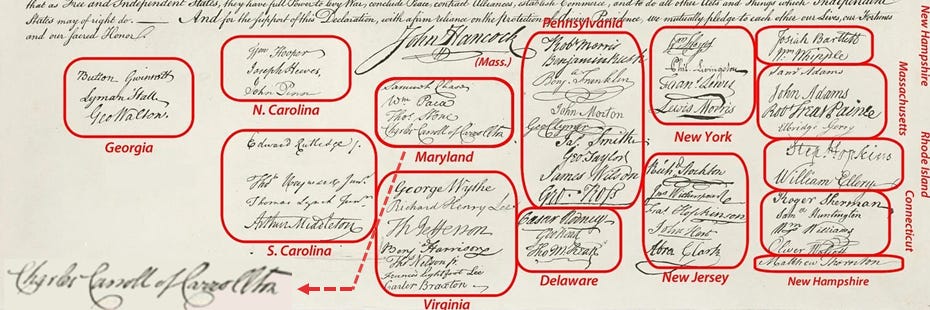 that as Free and Independent States, they have full Power to levy War, conclude Peace, contract Alliances, establish Commerce, and to do all other Acts and Things which Independent
States may of right do. — And for the support of this Declaration, with a firm reliance on the protection of Providence, we mutually pledge to each other our Lives, our Fortunes
and our sacred Honor.
John Hancock
(Mass.)
Button Gwinnett
Lyman Hall
Geo Walton.
Georgia
Wm Hooper
Joseph Hewes,
John Penn
N. Carolina
Edward Rutledge
Thos Heyward Junr.
Thomas Lynch Junr.
Arthur Middleton
S. Carolina
Samuel Chase
Wm Paca
Thos Stone
Charles Carroll of Carrollton
Maryland
George Wythe
Richard Henry Lee
Th Jefferson
Benj Harrison
Thos Nelson jr.
Francis Lightfoot Lee
Carter Braxton
Virginia
Pennsylvania
Robt Morris
Benjamin Rush
Benj. Franklin
John Morton
Geo Clymer
Jas. Smith
Geo. Taylor
James Wilson
Geo. Ross
Caesar Rodney
Geo Read
Tho M:Kean
Delaware
Phil. Livingston
Frans. Lewis
Lewis Morris
New York
Richd. Stockton
Jno Witherspoon
Fras. Hopkinson
John Hart
Abra Clark
New Jersey
Josiah Bartlett
Wm. Whipple
New Hampshire
Saml Adams
John Adams
Robt Treat Paine
Elbridge Gerry
Massachusetts
Step. Hopkins
William Ellery
Rhode Island
Roger Sherman
Saml Huntington
Wm. Williams
Oliver Wolcott
Connecticut
Matthew Thornton
New Hampshire
Charles Carroll of Carrollton